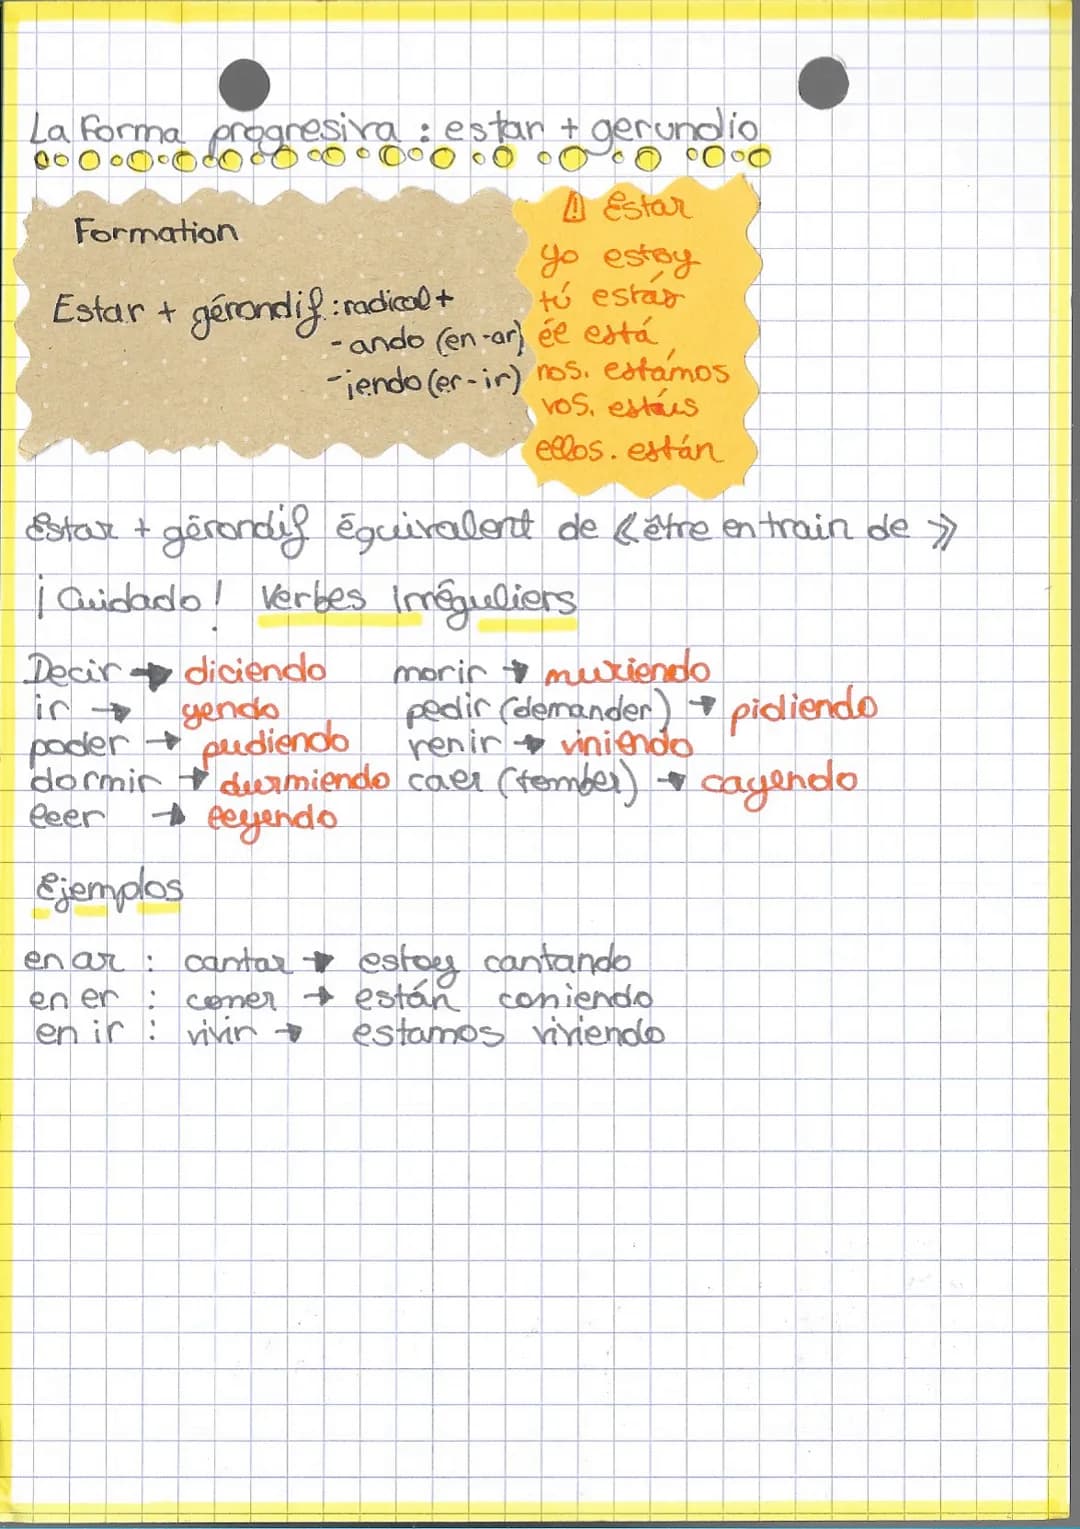 La forma progresiva : estar + gerundio
Formation
Estar + gérondif : radical +
- ando (en -ar)
- iendo (er - ir)
⚠ Estar
yo estoy
tú estás
él está
nos. estámos
vos. estáis
ellos. están
Estar + gérondif équivalent de « être en train de »
¡ Cuidado ! Verbes irréguliers
Decir → diciendo morir → muriendo
ir → yendo pedir (demander) → pidiendo
poder → pudiendo venir → viniendo
dormir → durmiendo caer (tomber) → cayendo
leer → leyendo
Ejemplos
en ar : cantar → estoy cantando
en er : comer → están comiendo
en ir : vivir → estamos viviendo